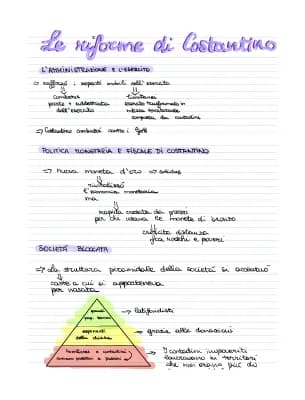 Le riforme di Costantino
L'AMMINISTRAZIONE E L'ESERCITO
→ rafforzò i reparti mobili dell'esercito
comitensi limitanei
parte + addestrata esercito trasformato in
dell'esercito milizia territoriale
composta da contadini
→ Costantino combatté contro i Goti
POLITICA MONETARIA E FISCALE DI COSTANTINO
→ nuova moneta d'oro → solidus
rivitalizzò
l'economia monetaria
ma
rapida crescita dei prezzi
per chi usava le monete di bronzo
crescita distanza
fra ricchi e poveri
SOCIETÀ BLOCCATA
→ La struttura piramidale della società si accentuò
caste a cui si apparteneva
per nascita
grandi
prop. terrieri → latifondisti
esponenti
della chiesa → grazie alle donazioni
→ I contadini impoveriti
lavoravano in territori
che non erano più di